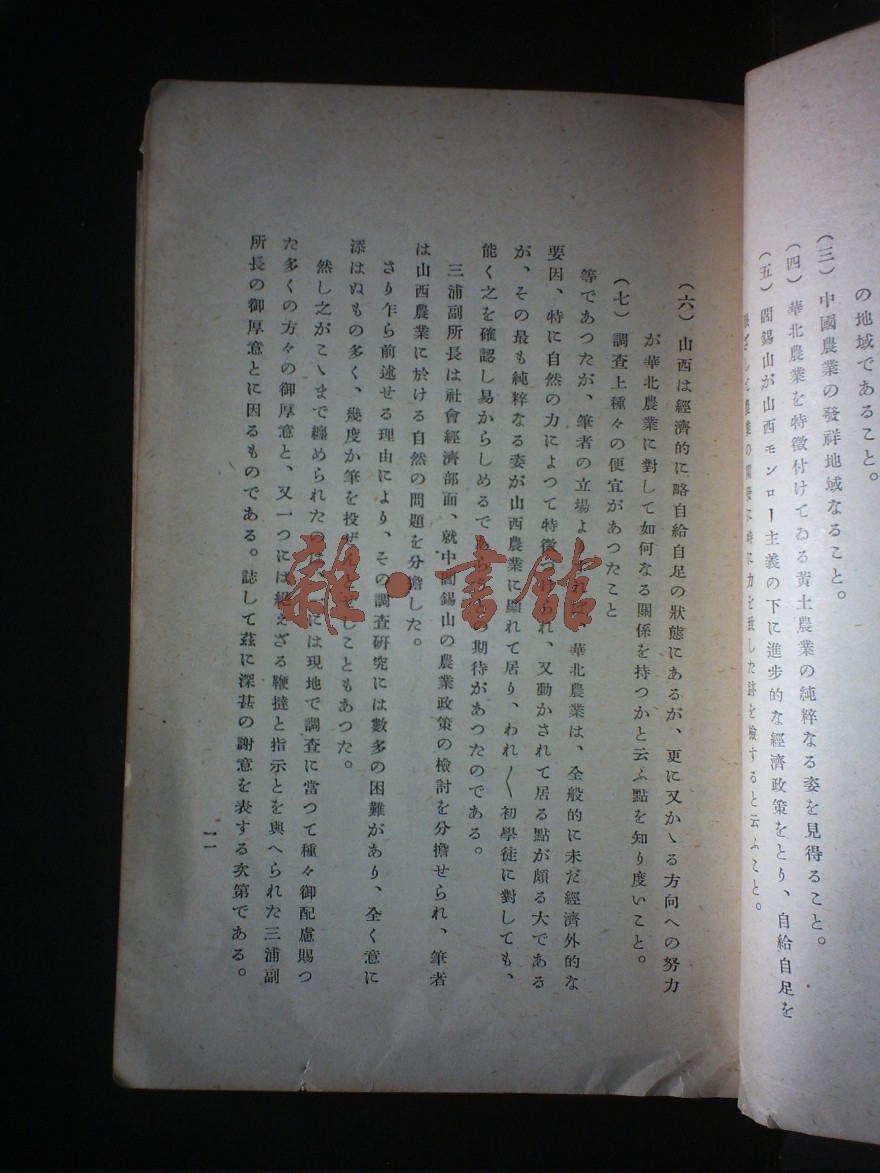 の地域であること。
(三) 中國農業の發祥地域なること。
(四) 華北農業を特徴付けてゐる黄土農業の純粹なる姿を見得ること。
(五) 閻錫山が山西モンロー主義の下に進步的な經濟政策をとり、自給自足を
農業の に特に力を致した跡を檢すると云ふこと。
(六) 山西は經濟的に略自給自足の狀態にあるが、更に又かゝる方向への努力
が華北農業に對して如何なる關係を持つかと云ふ點を知り度いこと。
(七) 調查上種々の便宜があつたこと
等であつたが、筆者の立場よ 華北農業は、全般的に未だ經濟外的な
要因、特に自然の力によつて特徴 れ、又動かされて居る點が頗る大である
が、その最も純粹なる姿が山西農業に顯れて居り、われ〳〵初學徒に對しても、
能く之を確認し易からしめるであらう の期待があつたのである。
三浦副所長は社會經濟部面、就中閻錫山の農業政策の檢討を分擔せられ、筆者
は山西農業に於ける自然の問題を分擔した。
さり乍ら前述せる理由により、その調查硏究には數多の困難があり、全く意に
添はぬもの多く、幾度か筆を投ぜ しこともあつた。
然し之がこゝまで纏められたのは、 には現地で調查に當つて種々御配慮賜つ
た多くの方々の御厚意と、又一つには絕えざる鞭撻と指示とを與へられた三浦副
所長の御厚意とに因るものである。誌して茲に深甚の謝意を表する次第である。
一一
雜·書館